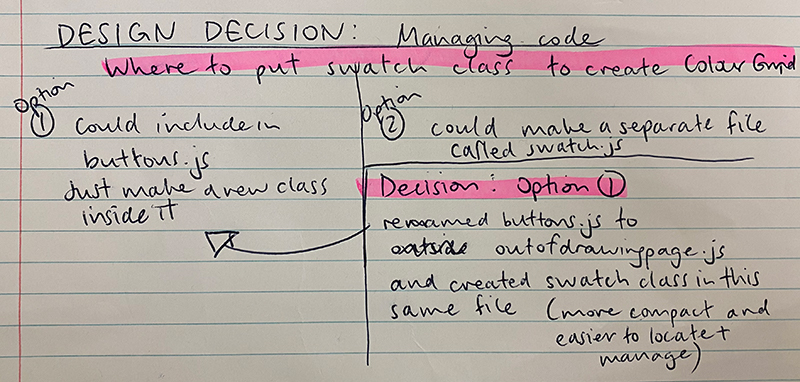 DESIGN DECISION: Managing code
Where to put swatch class to create Colour Grid
Option
① could include in
buttons.js
Just make a new class
inside it
Option
② could make a separate file
called swatch.js
Decision: Option ①
renamed buttons.js to
outside outofdrawingpage.js
and created swatch class in this
same file (more compact and
easier to locate +
manage)